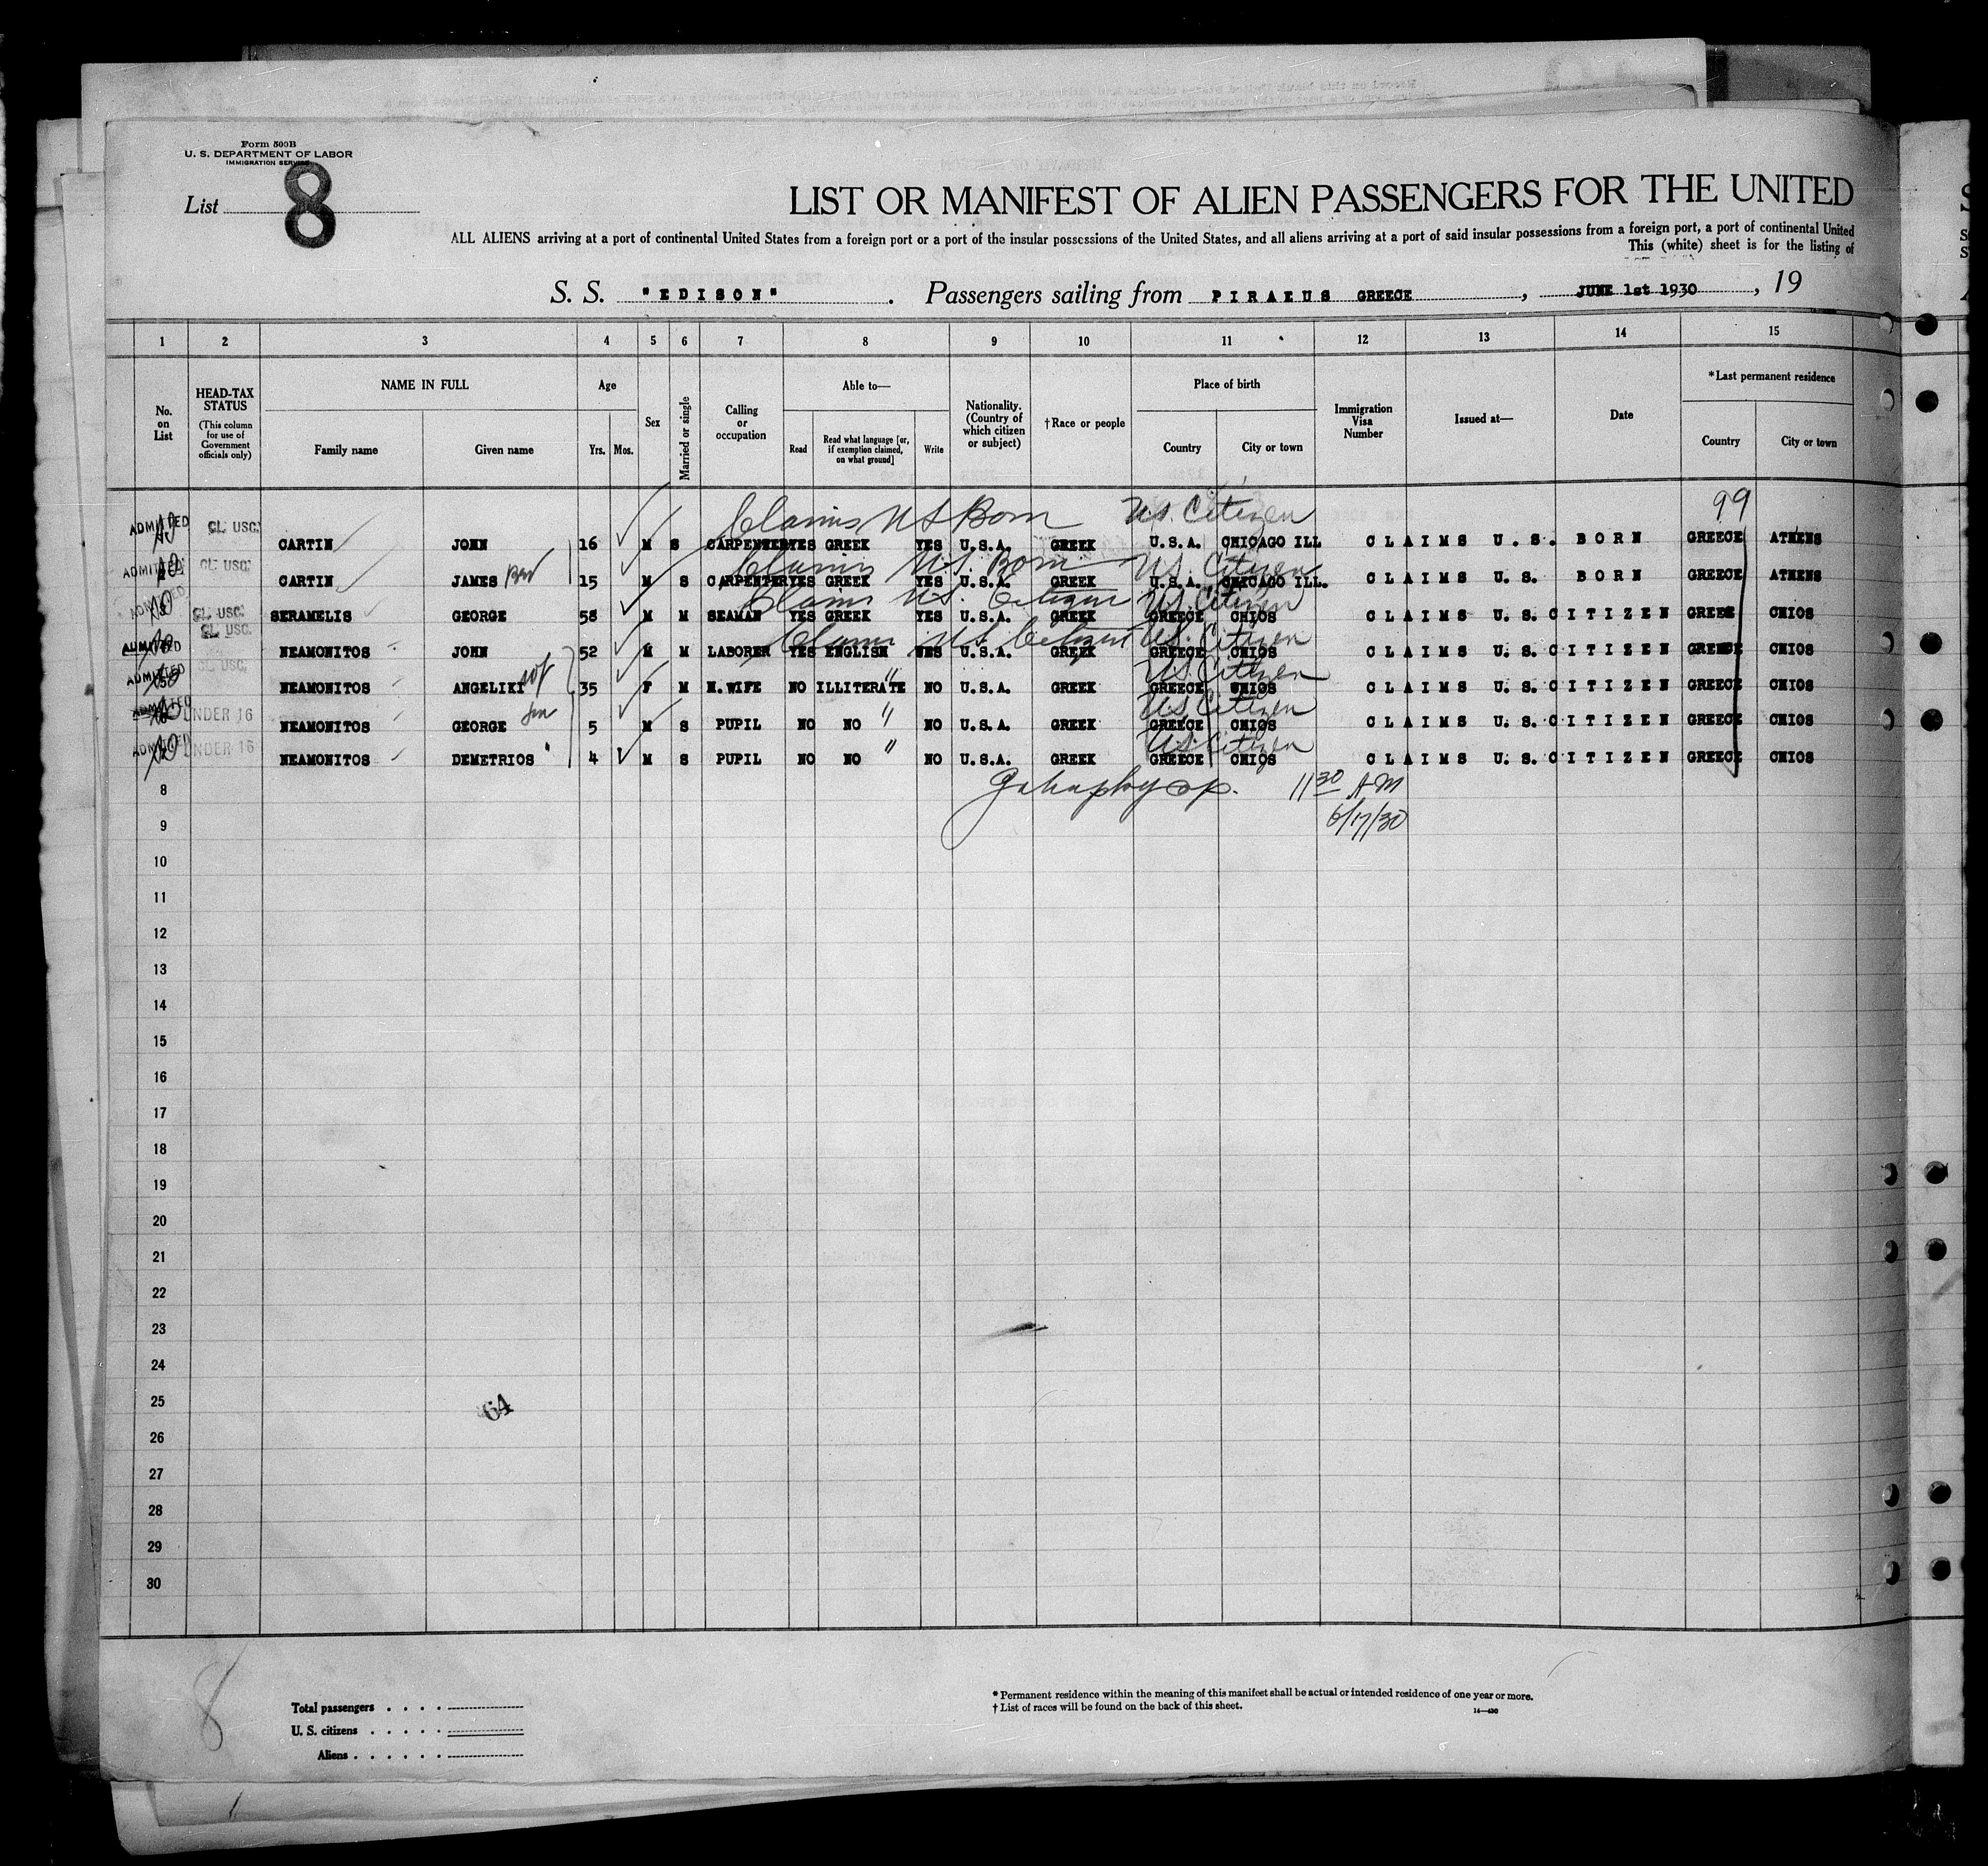 Form 500B
U. S. DEPARTMENT OF LABOR
IMMIGRATION SERVICE
List 8
LIST OR MANIFEST OF ALIEN PASSENGERS FOR THE UNITED
ALL ALIENS arriving at a port of continental United States from a foreign port or a port of the insular possessions of the United States, and all aliens arriving at a port of said insular possessions from a foreign port, a port of continental United
This (white) sheet is for the listing of
S. S. "EDISON" . Passengers sailing from PIRAEUS GREECE , JUNE 1st 1930 , 19
1 2 3 4 5 6 7 8 9 10 11 12 13 14 15
No. on List
HEAD-TAX STATUS (This column for use of Government officials only)
NAME IN FULL
Family name Given name
Age
Yrs. Mos.
Sex
Married or single
Calling or occupation
Able to—
Read Read what language [or, if exemption claimed, on what ground] Write
Nationality. (Country of which citizen or subject)
†Race or people
Place of birth
Country City or town
Immigration Visa Number
Issued at—
Date
*Last permanent residence
Country City or town
Claims US Born U.S. Citizen 99
ADMITTED CL. USC. CARTIN JOHN 16 M S CARPENTER YES GREEK YES U.S.A. GREEK U.S.A. CHICAGO ILL CLAIMS U.S. BORN GREECE ATHENS
Claims U.S. Born U.S. Citizen
ADMITTED CL. USC. CARTIN JAMES 15 M S CARPENTER YES GREEK YES U.S.A. GREEK U.S.A. CHICAGO ILL. CLAIMS U.S. BORN GREECE ATHENS
Claims U.S. Citizen U.S. Citizen
ADMITTED CL. USC. SERAMELIS GEORGE 58 M M SEAMAN YES GREEK YES U.S.A. GREEK GREECE CHIOS CLAIMS U.S. CITIZEN GREEE CHIOS
CL. USC. Claims US Citizen U.S. Citizen
ADMITTED NEAMONITOS JOHN 52 M M LABORER YES ENGLISH YES U.S.A. GREEK GREECE CHIOS CLAIMS U.S. CITIZEN GREECE CHIOS
CL. USC. U.S. Citizen
ADMITTED NEAMONITOS ANGELIKI wf 35 F M H.WIFE NO ILLITERATE " NO U.S.A. GREEK GREECE CHIOS CLAIMS U.S. CITIZEN GREECE CHIOS
U.S. Citizen
ADMITTED UNDER 16 NEAMONITOS GEORGE son 5 M S PUPIL NO NO " NO U.S.A. GREEK GREECE CHIOS CLAIMS U.S. CITIZEN GREECE CHIOS
U.S. Citizen
ADMITTED UNDER 16 NEAMONITOS DEMETRIOS " 4 M S PUPIL NO NO " NO U.S.A. GREEK GREECE CHIOS CLAIMS U.S. CITIZEN GREECE CHIOS
8 11 30 AM
9 6/17/30
10
11
12
13
14
15
16
17
18
19
20
21
22
23
24
25 64
26
27
28
29
30
8
Total passengers . . . .
U. S. citizens . . . . .
Aliens . . . . . .
* Permanent residence within the meaning of this manifest shall be actual or intended residence of one year or more.
† List of races will be found on the back of this sheet.
14—430